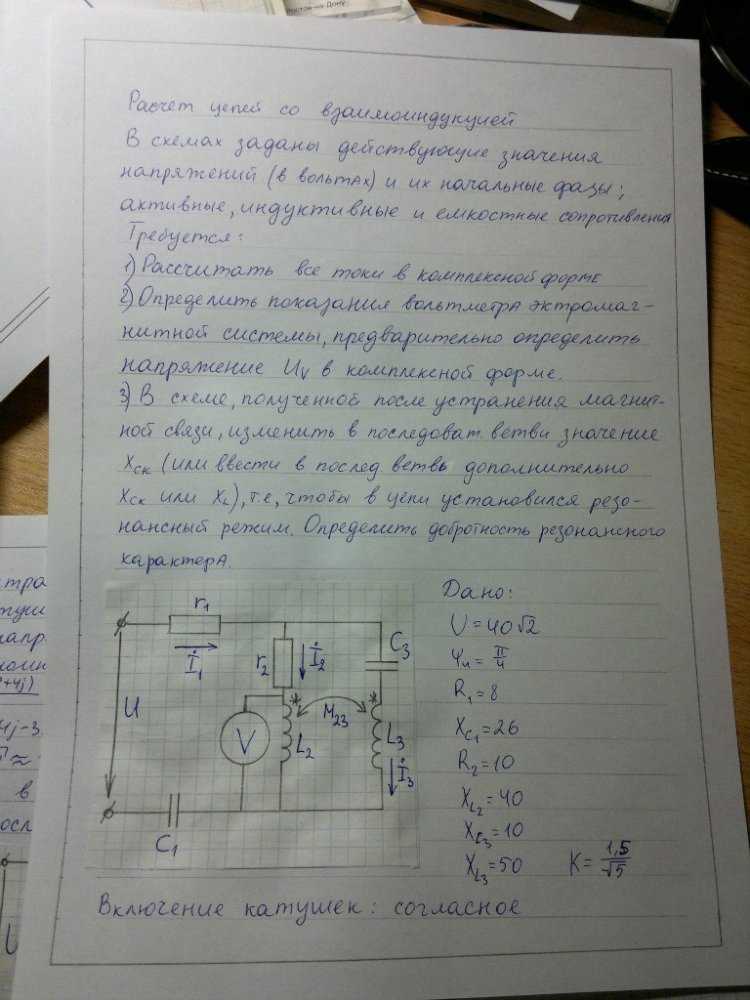 Ростов-на-Дону
Расчет цепей со взаимоиндукцией
В схемах заданы действующие значения
напряжений (в вольтах) и их начальные фазы;
активные, индуктивные и емкостные сопротивления
Требуется:
1) Рассчитать все токи в комплексной форме
2) Определить показания вольтметра эктромаг-
нитной системы, предварительно определить
напряжение UV в комплексной форме.
3) В схеме, полученной после устранения магнит-
ной связи, изменить в последоват. ветви значение
Xск (или ввести в послед. ветвь дополнительно
Xск или XL), т.е, чтобы в цепи установился резо-
нансный режим. Определить добротность резонансного
характера.
Дано:
U = 40√2
Ψu = π/4
R1 = 8
XC1 = 26
R2 = 10
XL2 = 40
XC3 = 10
XL3 = 50
K = 1,5/√5
r1
İ1
r2
İ2
C3
U
V
L2
M23
L3
İ3
C1
Включение катушек: согласное